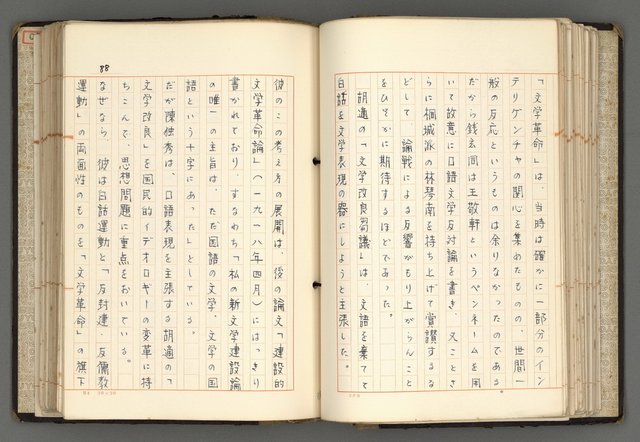 「文学革命」は、当時は確かに一部分のイン
テリゲンチャの関心を集めたものの、世間一
般の反応というものは余りなかったのである
だから銭玄同は王敬軒というペンネームを用
いて故意に口語文学反対論を書き、又ことさ
らに桐城派の林琴南を持ち上げて賞讃するな
どして、論戦による反響がもり上がらんこと
をひそかに期待するほどであった。
胡適の「文学改良芻議」は、文語を棄てて
白話を文学表現の器にしようと主張した。
彼のこの考え方の展開は、後の論文「建設的
文学革命論」(一九一八年四月)にはっきり
書かれており、すなわち「私の新文学建設論
の唯一の主旨は、ただ国語の文学、文学の国
語という十字にあった」としている。
だが陳独秀は、口語表現を主張する胡適の「
文学改良」を国民的イデオロギーの変革に持
ちこんで、思想問題に重点をおいている。
なぜなら、彼は白話運動と「反封建、反儒教
運動」の両面性のものを「文学革命」の旗下
88